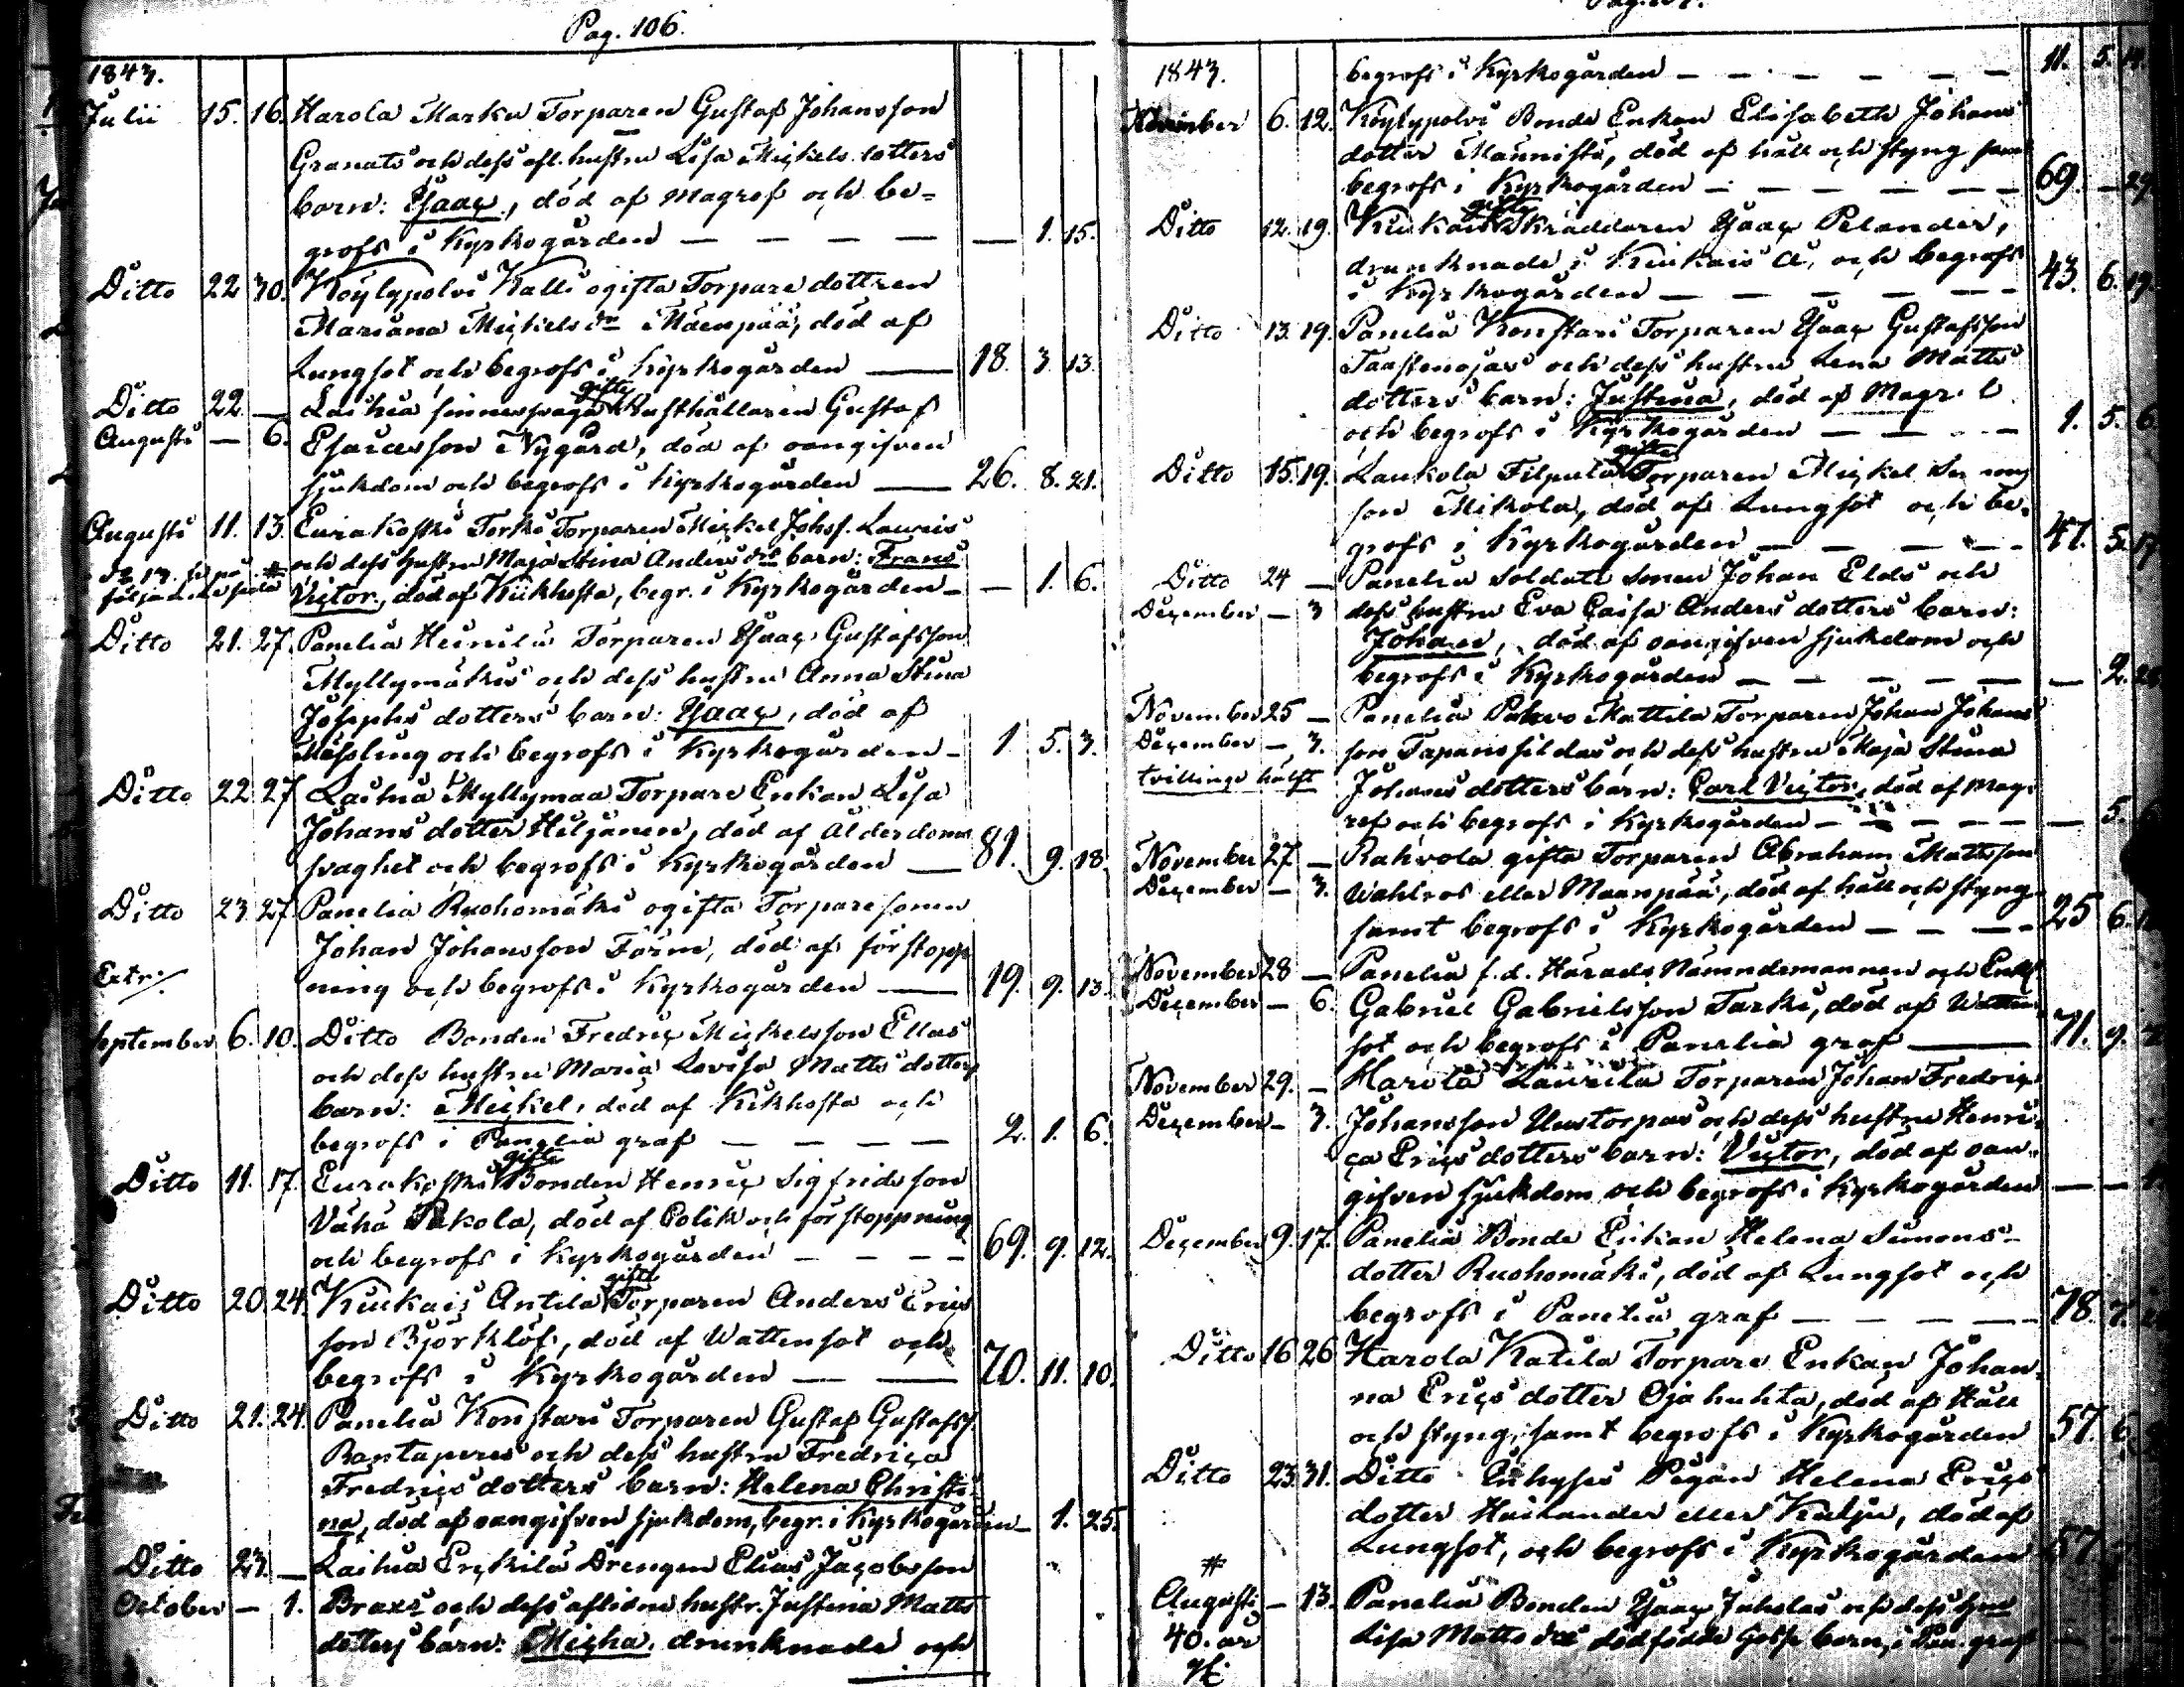 Pag. 106.
1843.
Julii 15. 16. Harola Marku Torparen Gustaf Johansson
Granats och dess afl. hustru Lisa Mickels dotters
barn: Isaac, död af Magref och be-
grofs i Kyrkogården — — — — — 1. 15.
Ditto 22 30. Köylypolvi Kalli ogifta Torpare dottren
Mariana Mickels dr Mäenpää, död af
Lungsot och begrofs i Kyrkogården — 18. 3. 13.
Ditto 22 — Laihia sinnessvaga gifte Rusthållaren Gustaf
Augusti — 6. Esaiasson Nygård, död af oangifven
sjukdom och begrofs i Kyrkogården — 26. 8. 21.
Augusti 11. 13. Eurakoski Torki Torparen Mickel Johss. Lauris
och dess hustru Maja Stina Anders drs barn: Frans
Victor, död af Kikhosta, begr. i Kyrkogården — — 1. 6.
Ditto 21. 27. Panelia Heinila Torparen Isaac Gustafsson
Myllymäkis och dess hustru Anna Stina
Josephs dotters barn: Isaac, död af
Mässling och begrofs i Kyrkogården — 1. 5. 3.
Ditto 22 27 Laihia Myllymaa Torpare Enkan Lisa
Johans dotter Heljanen, död af Ålderdoms
svaghet och begrofs i Kyrkogården — 81. 9. 18.
Ditto 23. 27. Panelia Ruohomäki ogifta Torpare sonen
Johan Johansson Färm, död af förstopp
Extr: ning och begrofs i Kyrkogården — 19. 9. 13.
September 6. 10. Ditto Bonden Fredric Mickelsson Ellas
och dess hustru Maria Lovisa Matts dotters
barn: Mickel, död af Kikhosta och
begrofs i Panelia graf — — — — 2. 1. 6.
Ditto 11. 17. Eurakoski gifte Bonden Henric Sigfridsson
Vähä Pukola, död af Colik och förstoppning
och begrofs i Kyrkogården — — — — 69. 9. 12.
Ditto 20. 24. Kiukais Antila gifte Torparen Anders Erics
son Björklöf, död af Wattensot och
begrofs i Kyrkogården — — 70. 11. 10.
Ditto 21. 24. Panelia Konstari Torparen Gustaf Gustafss.
Rantaperes och dess hustru Fredrica
Fredrics dotters barn: Helena Christi-
na, död af oangifven sjukdom, begr. i Kyrkogården — 1. 25.
Ditto 23. — Laihia Erckilä Drengen Elias Jacobsson
October — 1. Brax och dess aflidna hustr. Justina Matts
dotters barn: Micha, drunknade och
1843. begrofs i Kyrkogården — — — — — — 11. 5. 14.
November 6. 12. Köylypolvi Bonde Enkan Elisabeth Johans
dotter Männistä, död af håll och styng samt
begrofs i Kyrkogården — — — — — — 69. — 29.
Ditto 12. 19. Kiukais gifte Skräddaren Isaac Pelander,
drunknade i Kiukais Å, och begrofs
i Kyrkogården — — — — — — 43. 6. 19.
Ditto 13. 19. Panelia Konstari Torparen Isaac Gustafsson
Taastenojas och dess hustru Lena Matts
dotters barn: Justina, död af Magr.
och begrofs i Kyrkogården — — — — 1. 5. 6.
Ditto 15. 19. Laukola Filpula gifte Torparen Mickel
son Mikola, död af Lungsot och be-
grofs i Kyrkogården — — — — — 47. 5. 17
Ditto 24 — Panelia Soldats sonen Johan Elds och
December — 3 dess hustru Eva Caisa Anders dotters barn:
Johan, död af oangifven sjukdom och
begrofs i Kyrkogården — — — — — — 2.
November 25 — Panelia Pahvo Mattila Torparen Johan Johans
December — 3. son Tapanisildas och dess hustru Maja Stina
tvillings hälft Johans dotters barn: Carl Victor, död af Mag-
ref och begrofs i Kyrkogården — — — — — — 5.
November 27 — Rahvola gifta Torparen Abraham Mattsson
December — 3. Wahlros eller Maanpää, död af håll och styng
samt begrofs i Kyrkogården — — — — 25 6.
November 28 — Panelia f. d. Härads Nämndemannen och Enkl.
December — 6. Gabriel Gabrielsson Tarki, död af Watten
sot och begrofs i Panelia graf — 71. 9.
November 29. — Harola Laurila Torparen Johan Fredric
December — 3. Johansson Uustorpas och dess hustru Henri-
ca Erics dotters barn: Victor, död af oan-
gifven sjukdom och begrofs i Kyrkogården — — 1.
December 9. 17. Panelia Bonde Enkan Helena Simons-
dotter Ruohomäki, död af Lungsot och
begrofs i Panelia graf — — — — — 78. 7.
Ditto 16 26 Harola Katila Torpare Enkan Johan-
na Erics dotter Ojahuhta, död af Håll
och styng, samt begrofs i Kyrkogården 57. 6.
Ditto 23. 31. Ditto Inhyses Pigan Helena Erics
dotter Hailander eller Kulju, död af
Lungsot, och begrofs i Kyrkogården 57.
#
Augusti — 13. Panelia Bonden Isaac Juholas och dess
40. år Lisa Matts drs dödfödde Goss barn, i Pan. graf